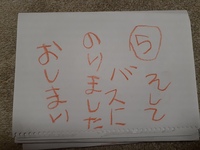 ⑤
そして
バスに
のりました
おしまい